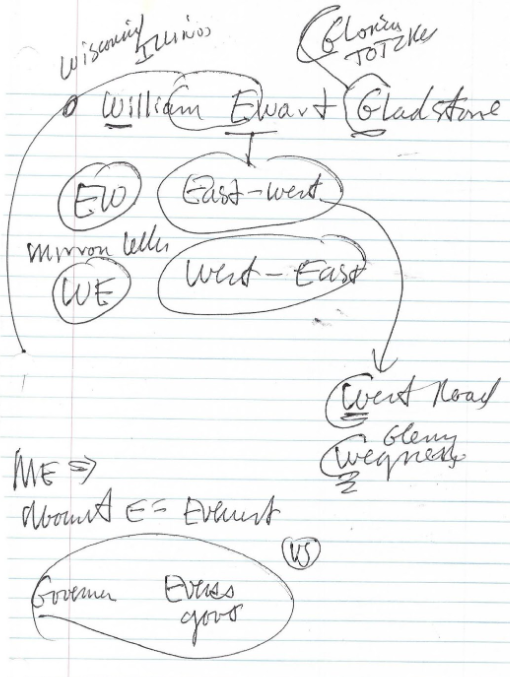 Wisconsin Illinos
Gloria
TOTZKE
William Ewart Gladstone
EW East-west
mirror letter
WE West-East
West Road
Glenn
Wegner
ME ⇒
Mount E = Everest
VS
Governor Evers
gov